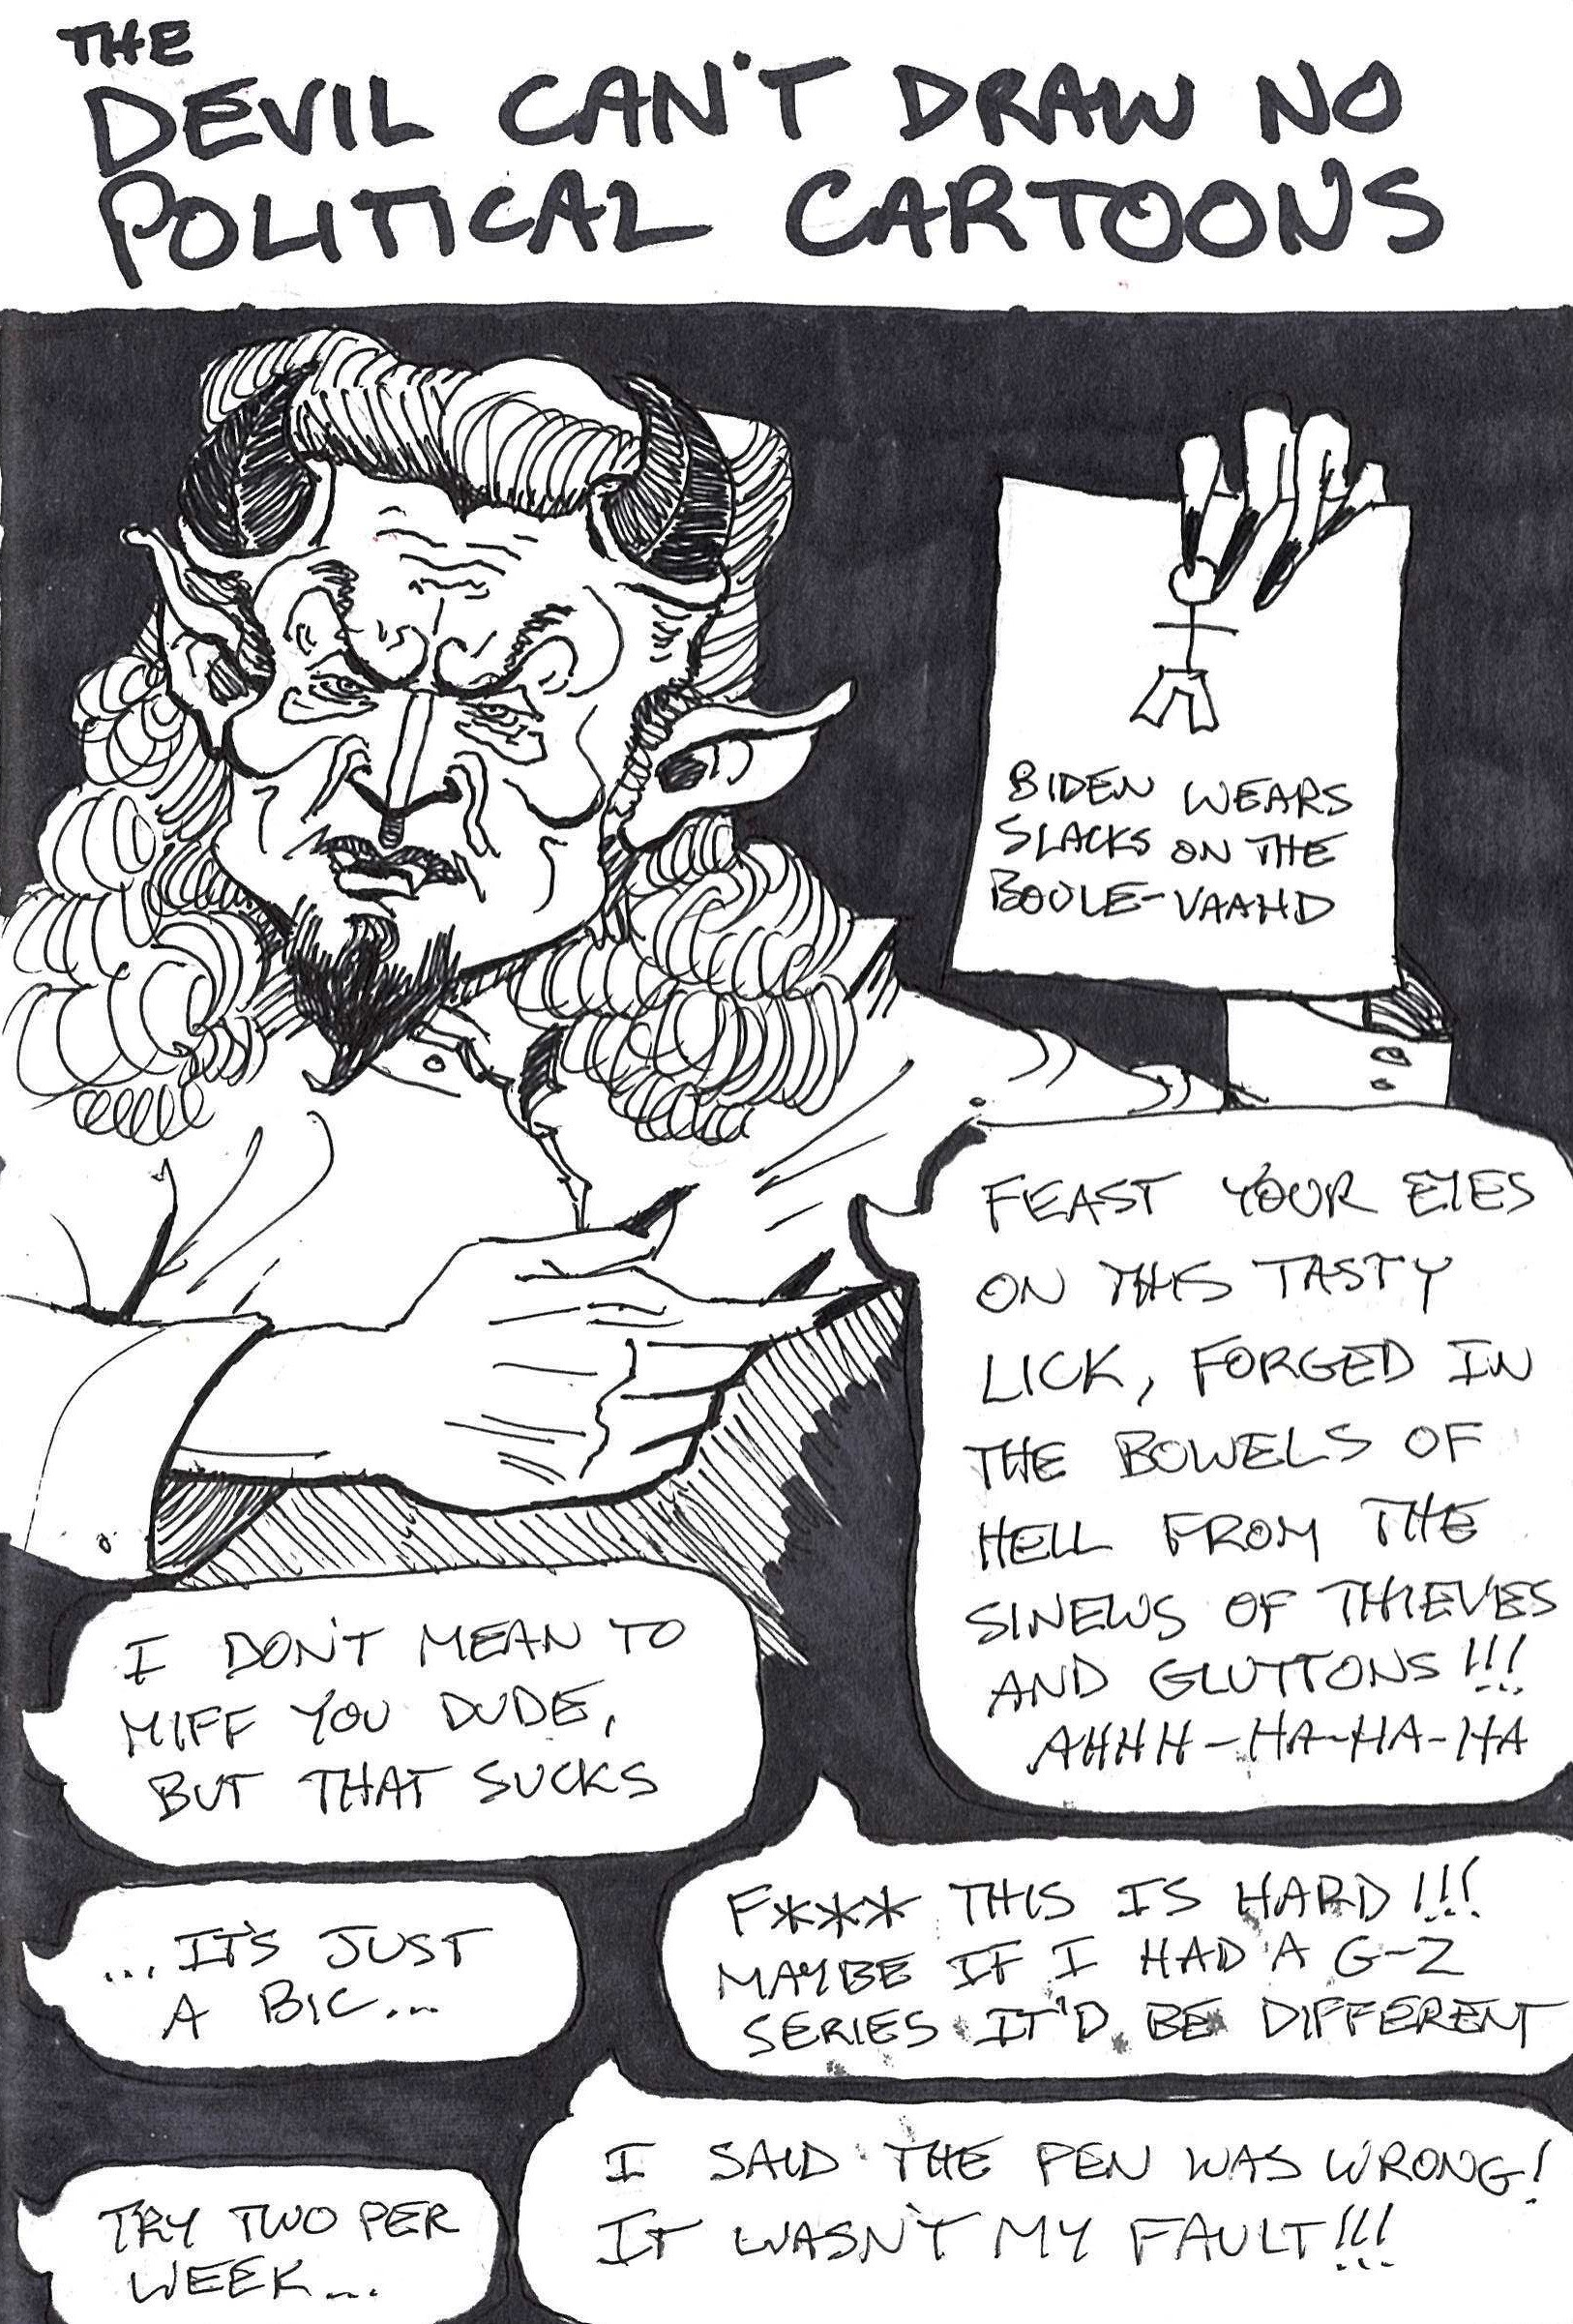 THE
DEVIL CAN'T DRAW NO
POLITICAL CARTOONS
BIDEN WEARS
SLACKS ON THE
BOULE-VAAHD
FEAST YOUR EYES
ON THIS TASTY
LICK, FORGED IN
THE BOWELS OF
HELL FROM THE
SINEWS OF THIEVES
AND GLUTTONS!!!
AHHH-HA-HA-HA
I DON'T MEAN TO
MIFF YOU DUDE,
BUT THAT SUCKS
F*** THIS IS HARD!!!
MAYBE IF I HAD A G-2
SERIES IT'D BE DIFFERENT
...IT'S JUST
A BIC...
I SAID THE PEN WAS WRONG!
IT WASN'T MY FAULT!!!
TRY TWO PER
WEEK...